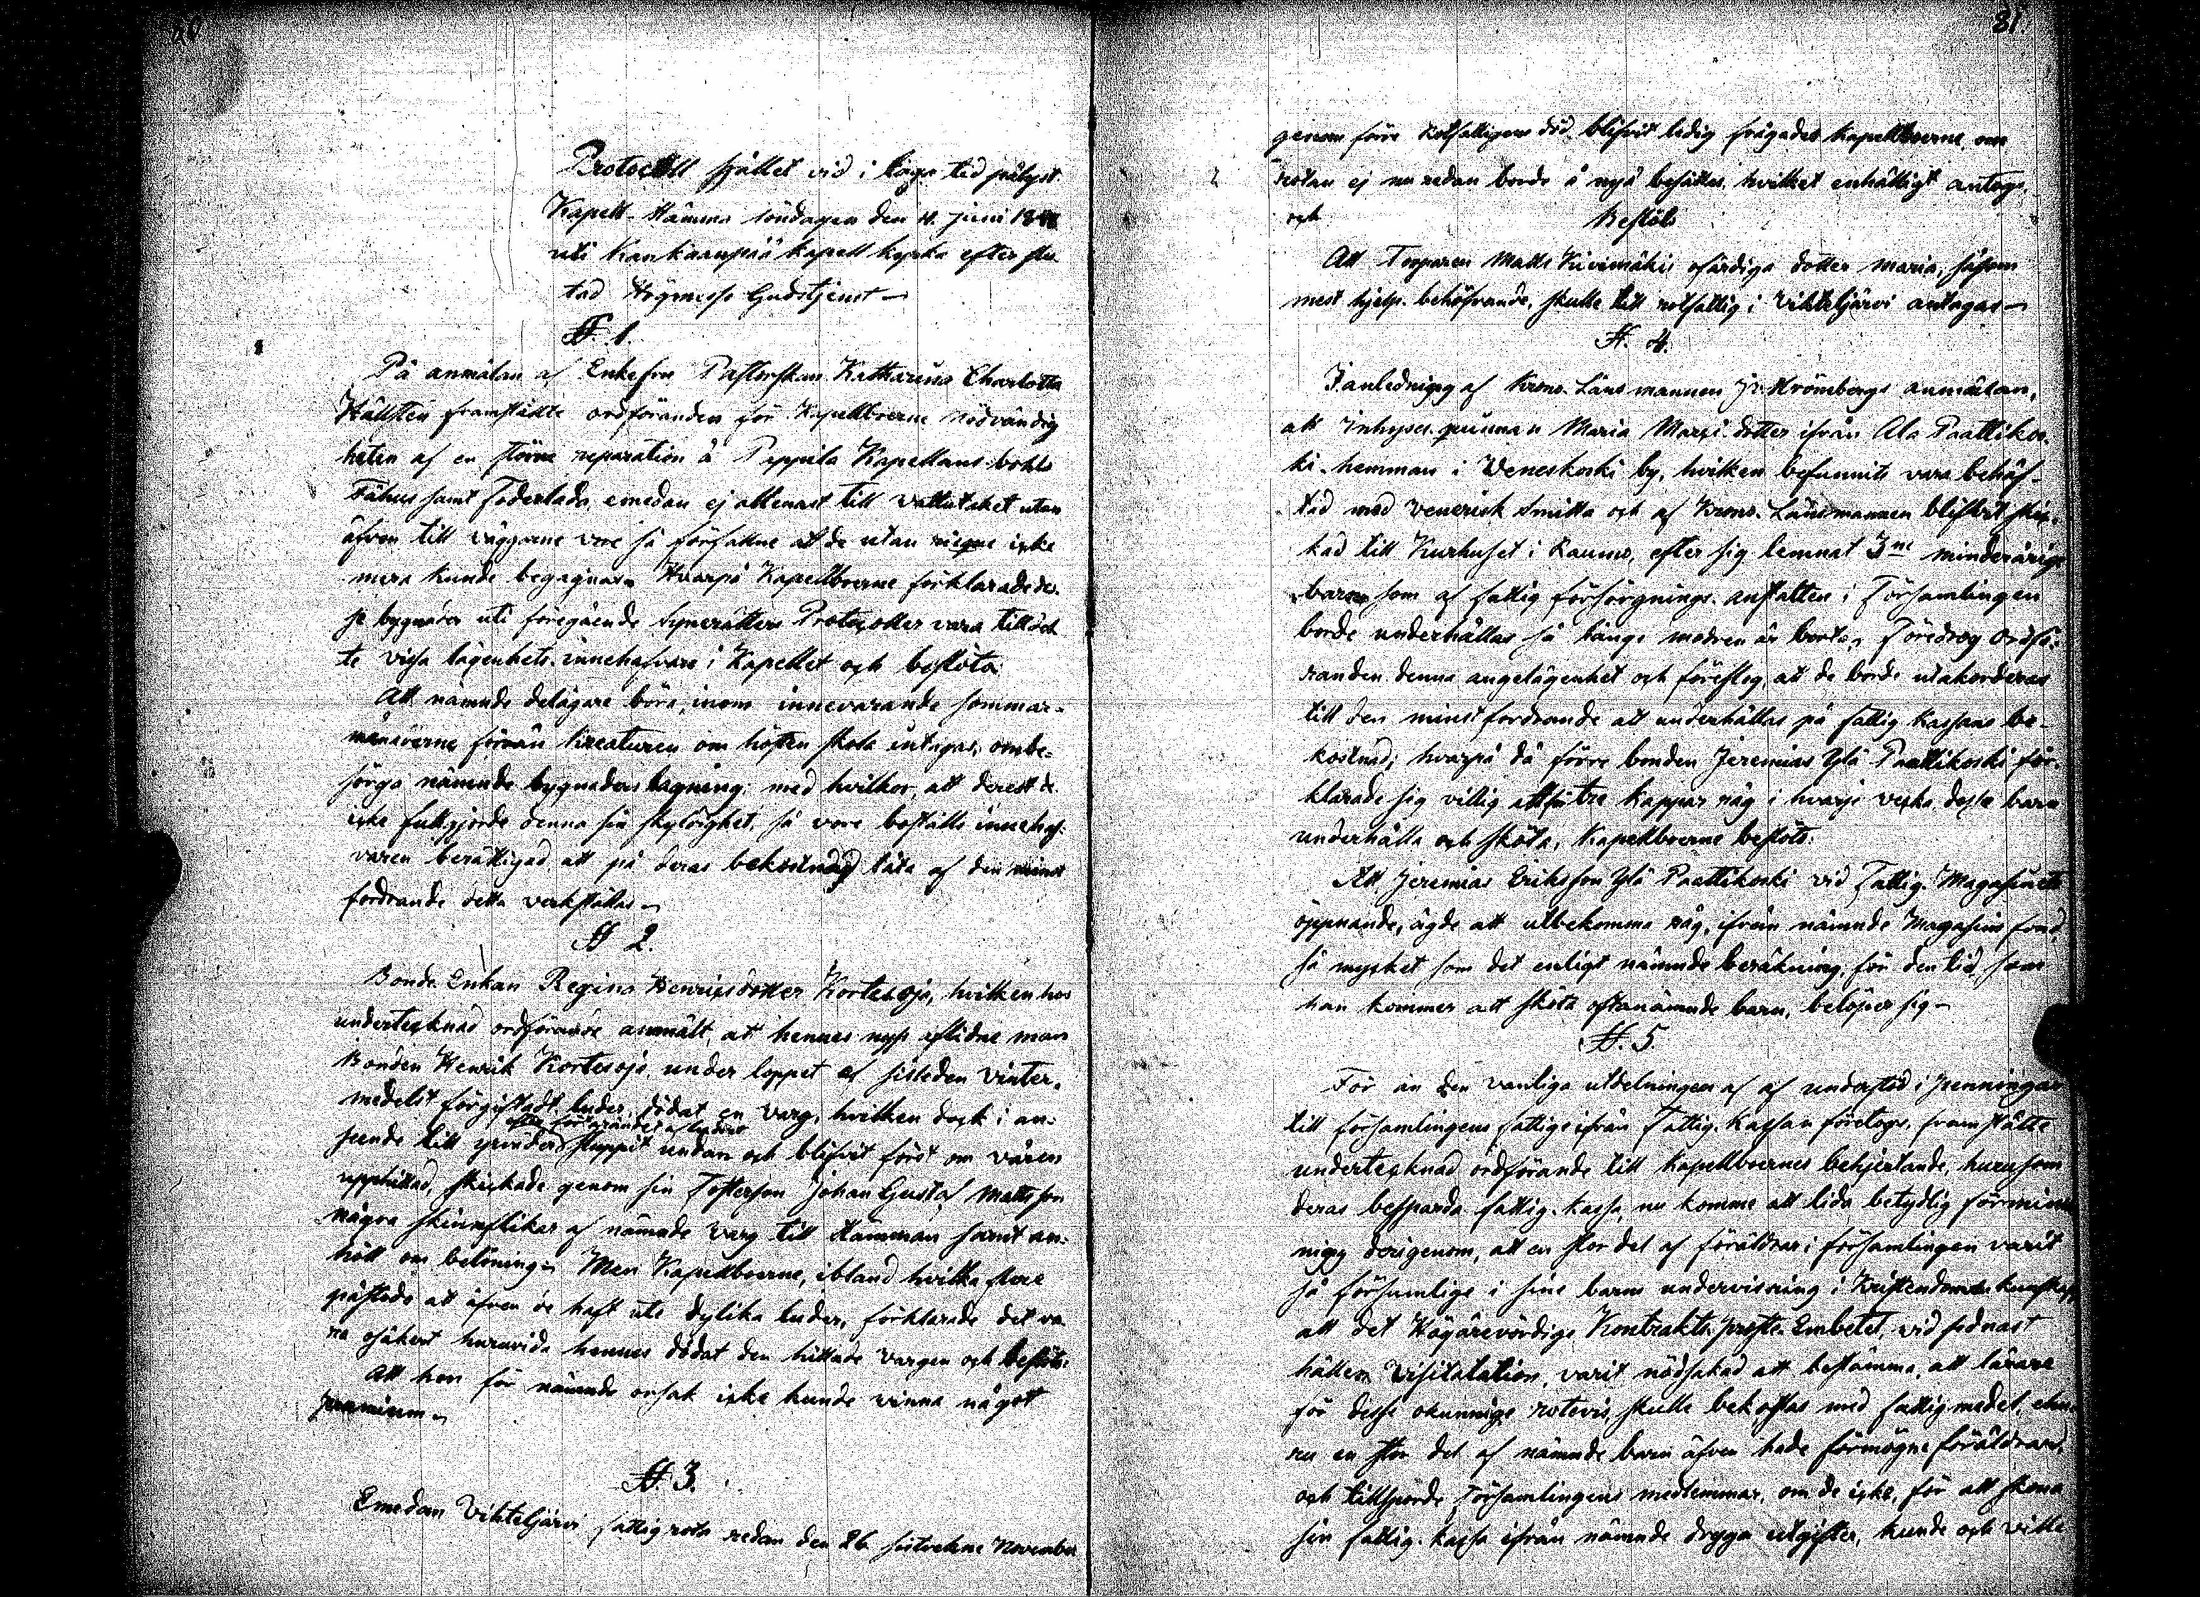 80
Protocoll hållet vid i laga tid pålyst
Kapell-Stämma söndagen den 4. Juni 1848
uti Kankaanpää kapell kyrka efter slu-
tad Högmesso Gudstjenst
§. 1.
På anmälan af Enkefru Pastorskan Katharina Charlotta
Hällstén framställte ordföranden för Kapellboerne nödvändig
heten af en större reparation å Peppila Kapellans bohls
Fähus samt Foderlada, emedan ej allenast till vattutaket utan
äfven till väggarne vore så förfallne att de utan risque icke
mera kunde begagnas. Hvarpå Kapellboerne förklarade des-
se bygnader uti föregående Synerätters Protocoller vara tilldel
te vissa lägenhets innehafvare i Kapellet och beslöto:
Att nämnde delägare böra, inom innevarande sommar-
månaderne förrän kreaturen om hösten skola intagas, ombe-
sörga nämnde bygnaders lagning; med hvilkor, att derest de
icke fullgjorde denna sin skyldighet, så vore boställs innehaf-
varen berättigad att på deras bekostnad låta af den minst
fordrande detta verkställas
§ 2.
Bonde Enkan Regina Henricsdotter Kortesoja, hvilken hos
undertecknad ordförande anmält, at hennes nyss aflidne man
Bonden Henrik Kortesoja, under loppet af sistleden vinter,
medelst förgiftadt luder, dödat en varg, hvilken dock i an-
efter förtärandet af ludret
seende till sluppit undan och blifvit först om våren
upphittad, skickade genom sin Fosterson Johan Gustaf Mattsson
några skinnflikar af nämnde varg till Stämman samt an-
höll om belöning. Men Kapellboerne, ibland hvilka flere
påstodo att äfven de haft ute dylika luder, förklarade det va-
ra osäkert huruvida hennes dödat den hittade vargen och beslöto:
Att hon för nämnde orsak icke kunde vinna något
premium
§. 3.
Emedan Vihteljärvi fattigrota redan den 26 sistvekne November
81.
genom förre rotfattigens död blifvit ledig frågades kapellboerne, om
rotan ej nu redan borde å nyo besättas, hvilket enhälligt antogs,
och Beslöts
Att Torparen Matts Kivimäkis ofärdiga dotter Maria, såsom
mest hjelp behöfvande, skulle till rotfattig i Vihteljärvi antagas
§. 4.
I anledning af Krono Länsmannen J. Strömbergs anmälan,
att Inhyses qvinnan Maria Matsdotter ifrån Ala Paattikos-
ki hemman i Veneskoski by, hvilken befunnits vara behäf-
tad med Venerisk smitta och af Krono Länsmannen blifvit skic-
kad till Kurhuset i Raumo, efter sig lemnat 3ne minderåriga
barn som af fattig försörgnings anstalten i Församlingen
borde underhållas så länge modren är borta, Föredrog Ordfö-
randen denna angelägenhet och föreslog, att de borde utackorderas
till den minstfordrande att underhållas på fattig kassans be-
kostnad; hvarpå då förre bonden Jeremias Ylä Paattikoski för-
klarade sig villig att för tre kappar råg i hvarje vecka dessa barn
underhålla och sköta, Kapellboerne beslöto:
Att Jeremias Eriksson Ylä Paattikoski vid Fattig-Magasinets
öppnande, ägde att utbekomma råg, ifrån nämnde Magasins fond,
så mycket som det enligt nämnde beräkning, för den tid, som
han kommer att sköta oftanämnde barn, belöper sig
§. 5.
För än den vanliga utdelningen af af understöd i penningar
till församlingens fattige ifrån Fattig-Kassan företogs, framställte
undertecknad ordförande till Kapellboernes behjertande, hurusom
deras besparda fattig-kassa, nu komme att lida betydlig förminsk
ning derigenom, att en stor del af föräldrar i församlingen varit
så försumlige i sine barns undervisning i Kristendoms kunskap,
att det Högärevördige Kontrakts-prosts-Embetet, vid sednast
hållen Visitatation, varit nödsakad att bestämma, att lärare
för desse okunnige rotevis, skulle bekostas med fattigmedel, ehu-
ru en stor del af nämnde barn äfven hade förmögne föräldrar,
och tillsporde Församlingens medlemmar, om de icke, för att skona
sin fattig-kassa ifrån nämnde dryga utgifter, kunde och ville